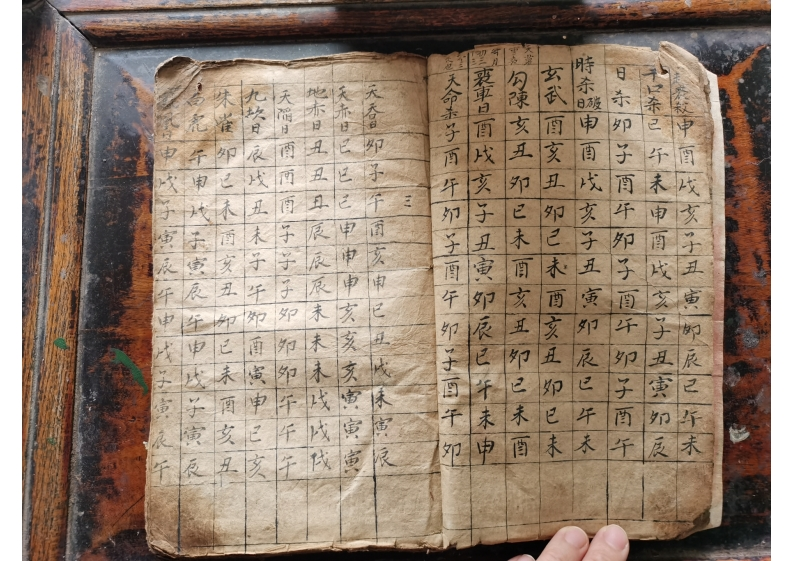 申酉戌亥子丑寅卯辰巳午未
千口杀巳午未申酉戌亥子丑寅卯辰
日杀卯子酉午卯子酉午卯子酉午
時杀破日申酉戌亥子丑寅卯辰巳午未
玄武酉亥丑卯巳未酉亥丑卯巳未
勾陳亥丑卯巳未酉亥丑卯巳未酉
喪車日酉戌亥子丑寅卯辰巳午未申
天命杀子酉午卯子酉午卯子酉午卯
三
天吞日卯子午酉亥申巳丑戌未寅辰
天赤日巳巳巳申申申亥亥亥寅寅寅
地赤日丑丑丑辰辰辰未未未戌戌戌
天隔日酉酉酉子子子卯卯卯午午午
九坎日辰戌丑未子午卯酉寅申巳亥
朱雀卯巳未酉亥丑卯巳未酉亥丑
白虎午申戌子寅辰午申戌子寅辰
申戌子寅辰午申戌子寅辰午